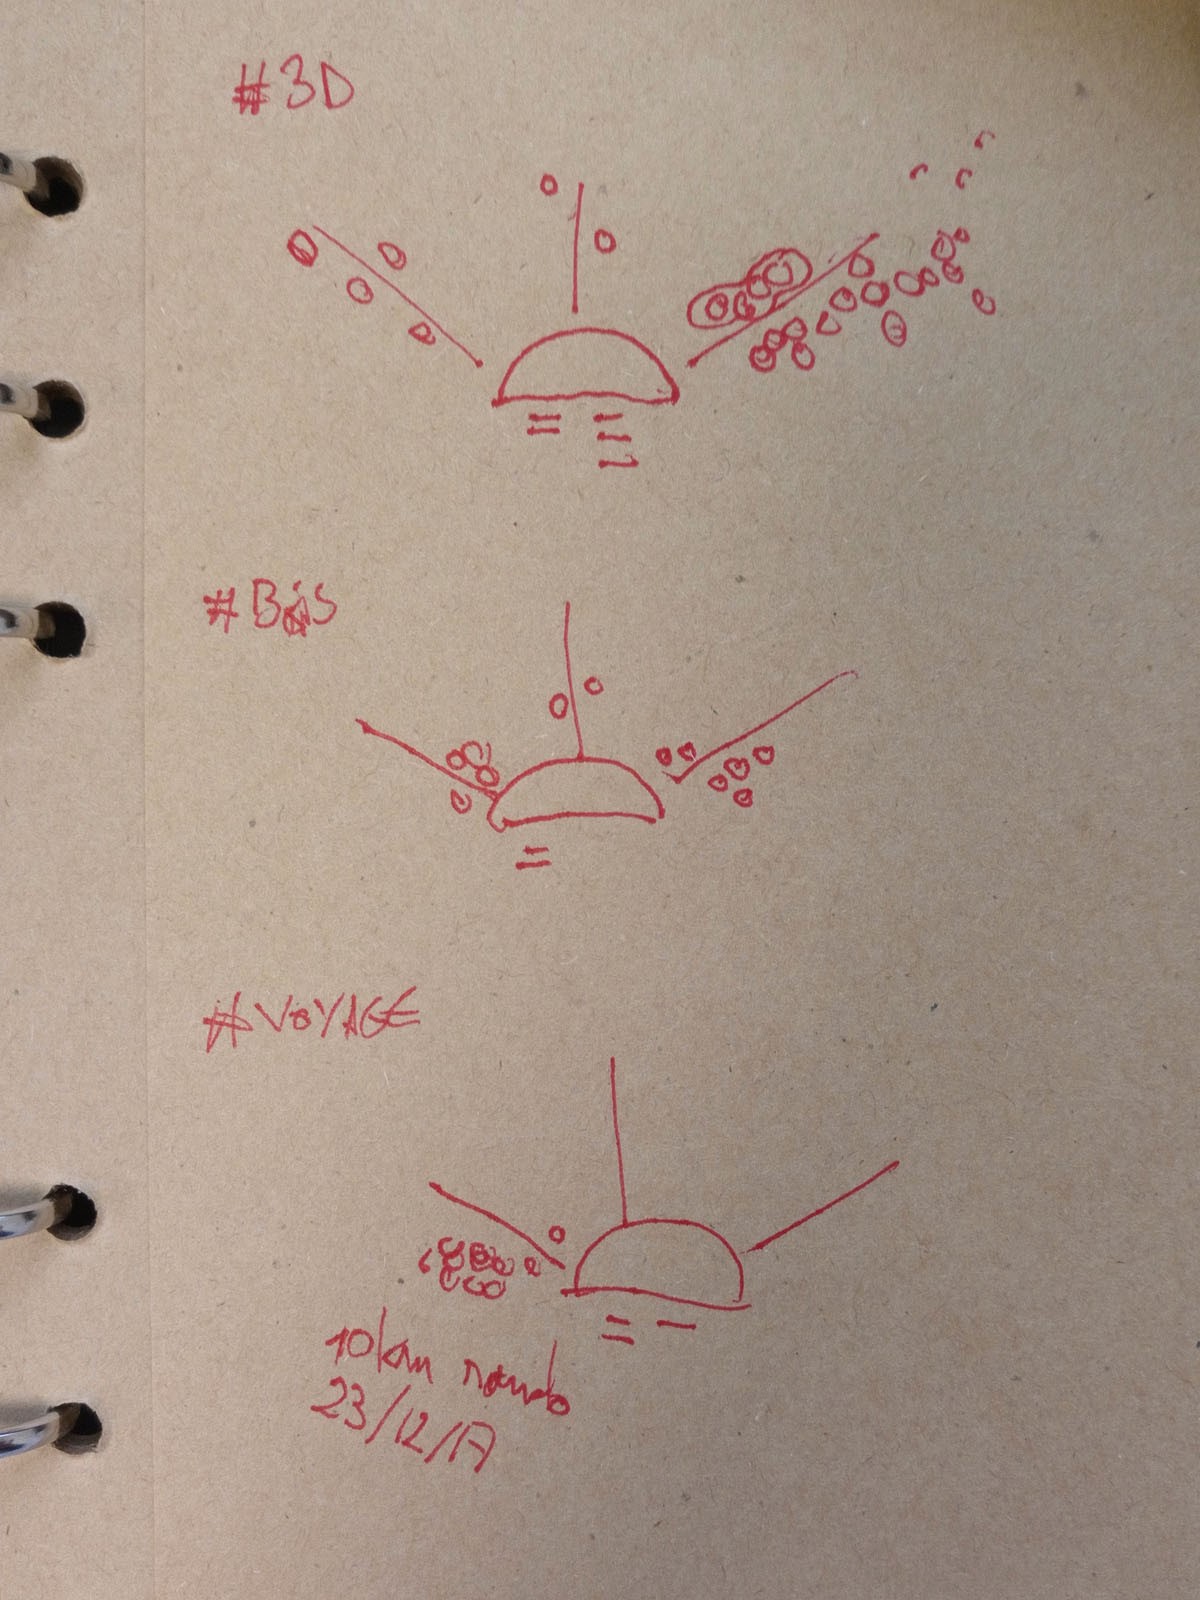 #3D
#BOIS
#VOYAGE
10km rando
23/12/17